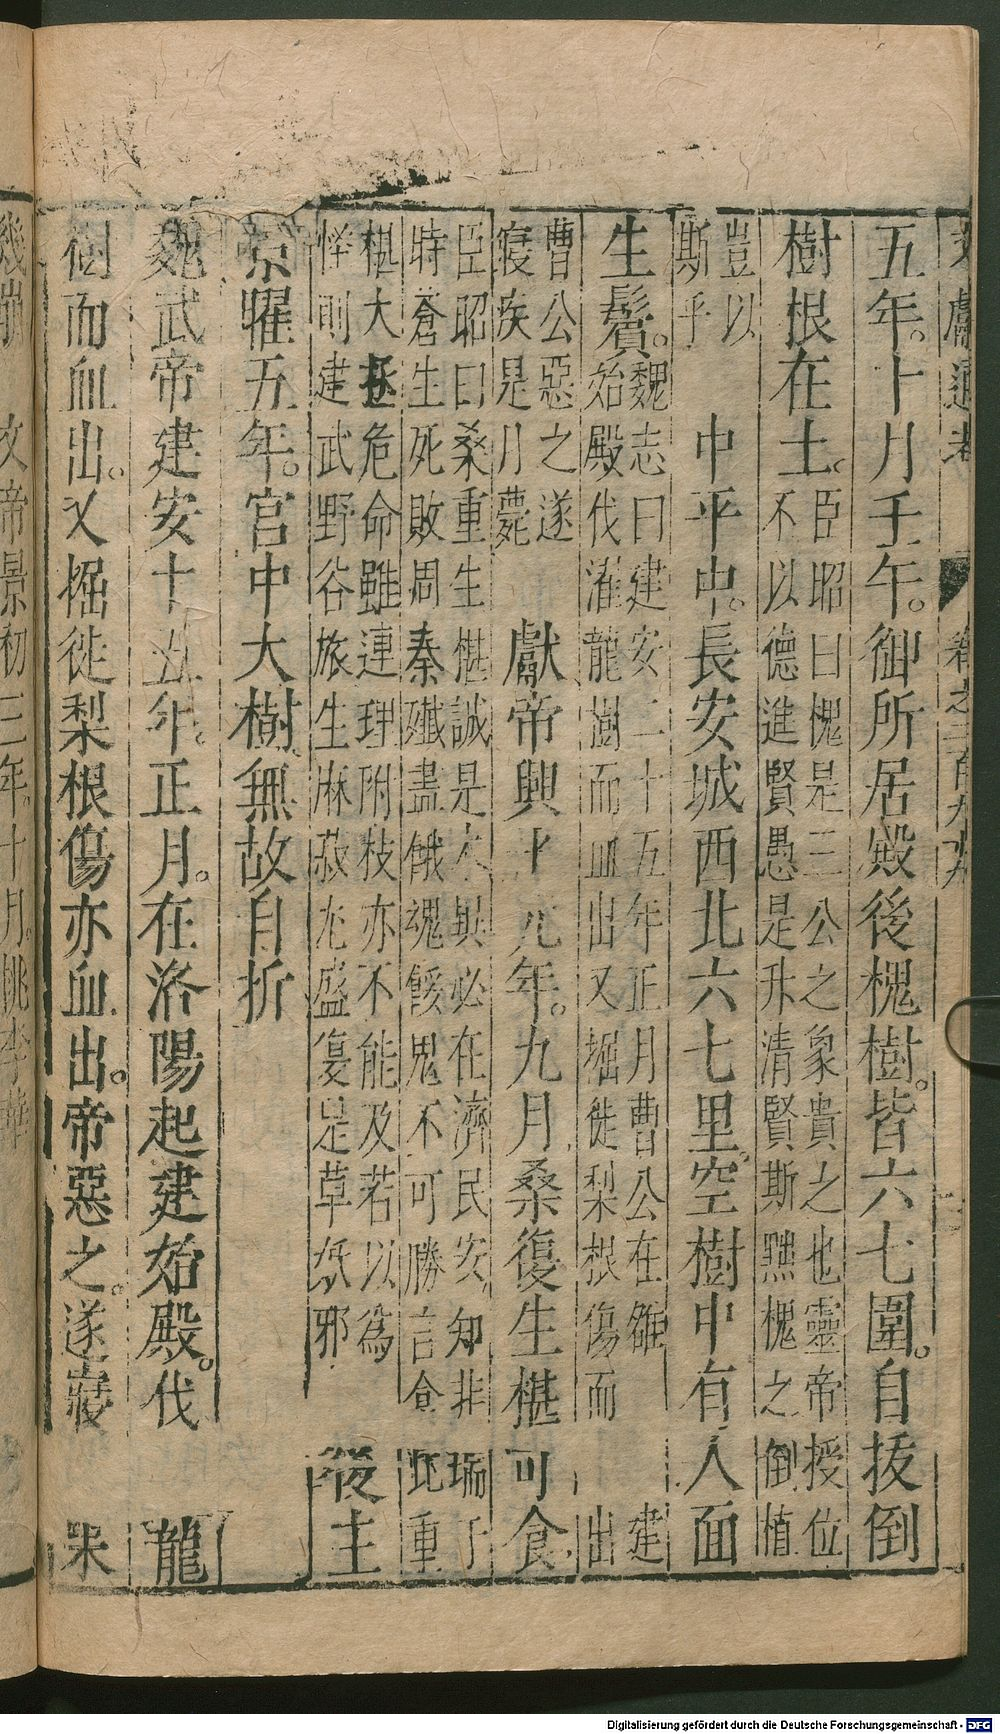 文獻通考 卷之二百九十九
五年。十月壬午。御所居殿後槐樹。皆六七圍。自拔倒
樹根在土。
臣昭曰槐是三公之象貴之也靈帝授位
不以德進賢愚是升清賢斯黜槐之倒植
豈以
斯乎
中平中。長安城西北六七里空樹中有人面
生鬢。
魏志曰建安二十五年正月曹公在雒 建
始殿伐濯龍樹而血出又掘徙梨根傷而 出
曹公惡之遂
寢疾是月薨
獻帝興十元年。九月桑復生椹可食。
臣昭曰桑重生椹誠是木異必在濟民安知非瑞乎
時蒼生死敗周秦殲盡餓魂餒鬼不可勝言食此重
椹大拯危命雖連理附枝亦不能及若以為
怪則建武野谷旅生麻菽尤盛復是草妖邪
後主
景曜五年。宮中大樹無故自折
魏武帝建安十五年。正月。在洛陽起建始殿。伐 龍
樹而血出。又掘徙梨根傷亦血出。帝惡之。遂寢
幾崩 文帝景初三年。十月。桃李華
Digitalisierung gefördert durch die Deutsche Forschungsgemeinschaft - DFG